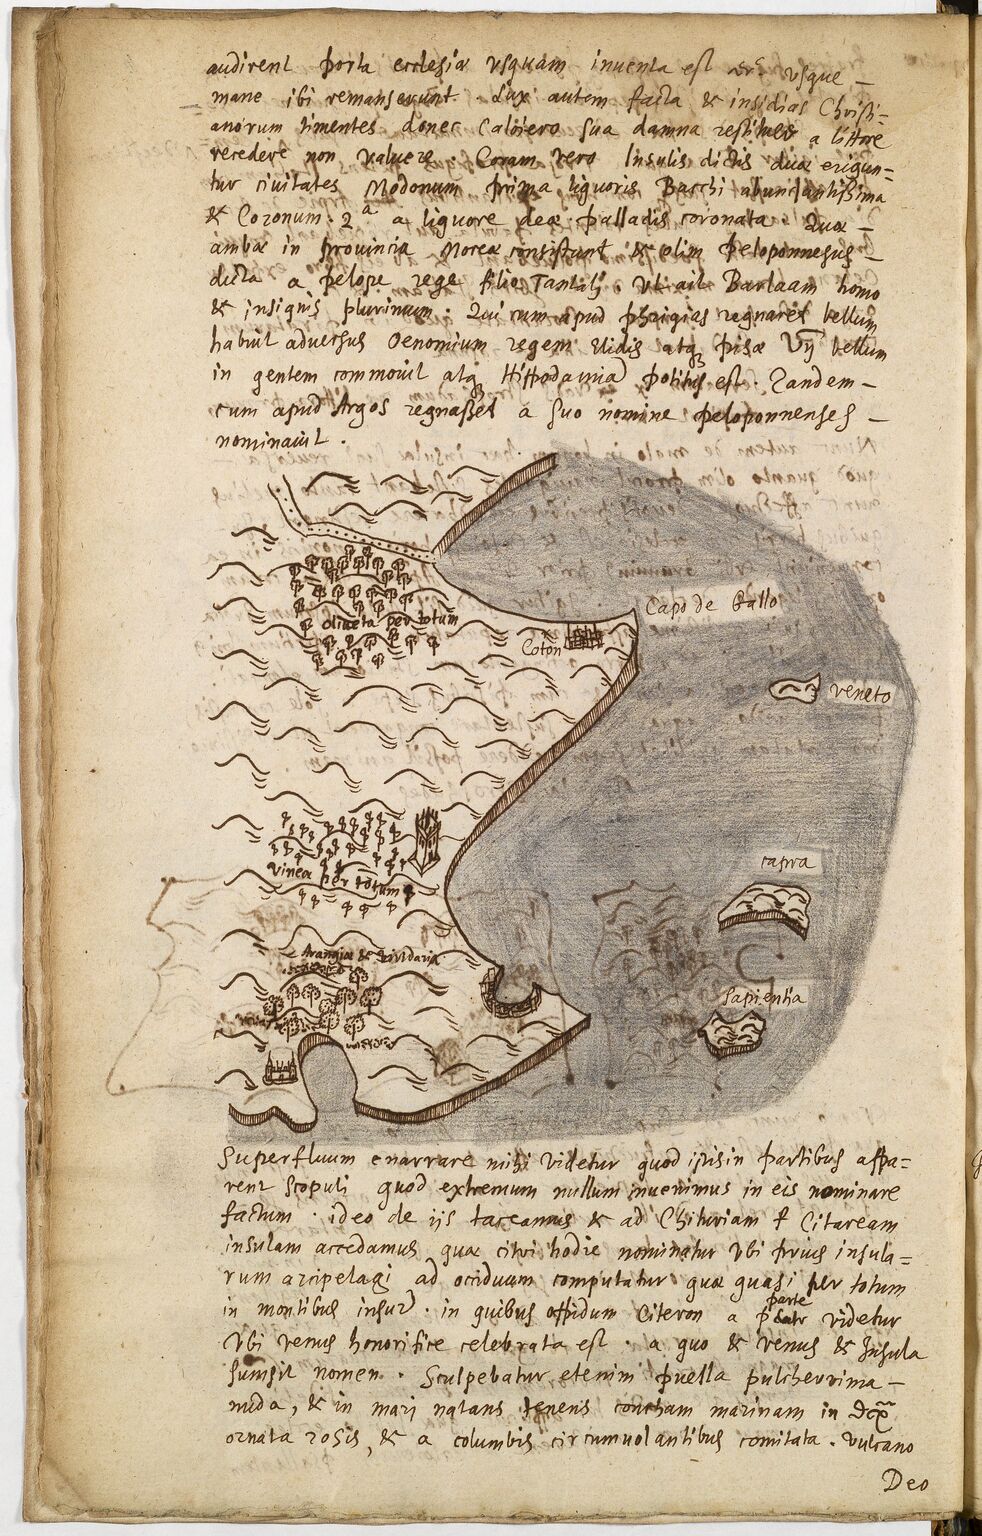 audirent porta ecclesiæ usquam inventa est usque —
mane ibi remanserunt. Lux autem facta & insidias Christi=
anorum timentes donec Caloiero sua damna restituer a littore
recedere non valuere. Coram vero Insulis dictis duæ erigun=
tur civitates Modonum prima liquoris Bacchi abundantissima
& Coronum. 2.ª a liquore deæ Palladis coronata. Quæ —
ambæ in provincia Moreæ consistunt & olim Peloponnesus —
dicta a Pelope rege filio Tantalj. Ut ait Barlaam homo
& insignis plurimum. Qui cum apud Phrigias regnaret bellum
habuit adversus Oenomium regem Elidis atq. Pisæ bellum
in gentem commovit atq. Hippodamiā potitus est. Tandem —
cum apud Argos regnasset a suo nomine Peloponnenses —
nominavit.
Capo de Gallo
oliveta per totum
Coron
veneto
vinea per totum
capra
Arangiæ & viridaria
Sapientia
Superfluum enarrare mihi videtur quod istis in partibus appa=
rent scopuli quod extremum nullum invenimus in eis nominare
factum. ideo de ijs taceamus & ad Chituriam Citaream
insulam accedamus quæ citri hodie nominatur Ubi prius insula=
rum arcipelagi ad occiduum computatur quæ quasi per totum
parte
in montibus insur̄. in quibus oppidum Citeron a videtur
Ubi venus honorifice celebrata est. a quo & venus & Insula
sumsit nomen. Sculpebatur etenim puella pulcherrima —
nuda, & in marj natans tenens concham marinam in
ornata rosis, & a columbis circumvolantibus comitata. Vulcano
Deo